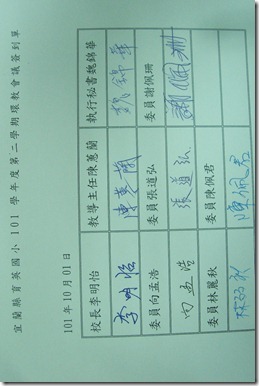 宜蘭縣育英國小 101 學年度第二學期環教會議簽到單
101 年 10 月 01 日
校長李明怡 教導主任陳蕙蘭 執行秘書魏錦華
李明怡 陳蕙蘭 魏錦華
委員向孟浩 委員張道弘 委員謝佩珊
向孟浩 張道弘 謝佩珊
委員林麗秋 委員陳佩君
林麗秋 陳佩君